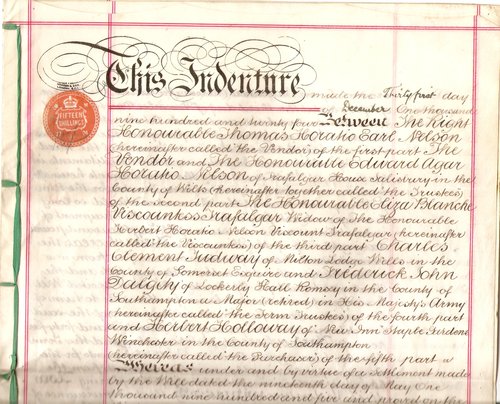 FIFTEEN
SHILLINGS
This Indenture made the Thirty first day
of December One thousand
nine hundred and twenty four Between The Right
Honourable Thomas Horatio Earl Nelson
(hereinafter called the Vendor) of the first part The
Vendor and The Honourable Edward Agar
Horatio Nelson of Trafalgar House Salisbury in the
County of Wilts (hereinafter together called the Trustees)
of the second part The Honourable Eliza Blanche
Viscountess Trafalgar Widow of The Honourable
Herbert Horatio Nelson Viscount Trafalgar (hereinafter
called the Viscountess) of the third part Charles
Clement Tudway of Milton Lodge Wells in the
County of Somerset Esquire and Frederick John
Dalgety of Lockerley Hall Romsey in the County of
Southampton a Major (retired) in His Majesty's Army
(hereinafter called the Term Trustees) of the fourth part
and Herbert Holloway of New Inn
Winchester in the County of Southampton
(hereinafter called the Purchaser) of the fifth part
Whereas under and by virtue of a Settlement made
by the Will dated the nineteenth day of May One
thousand nine hundred and five and proved on the